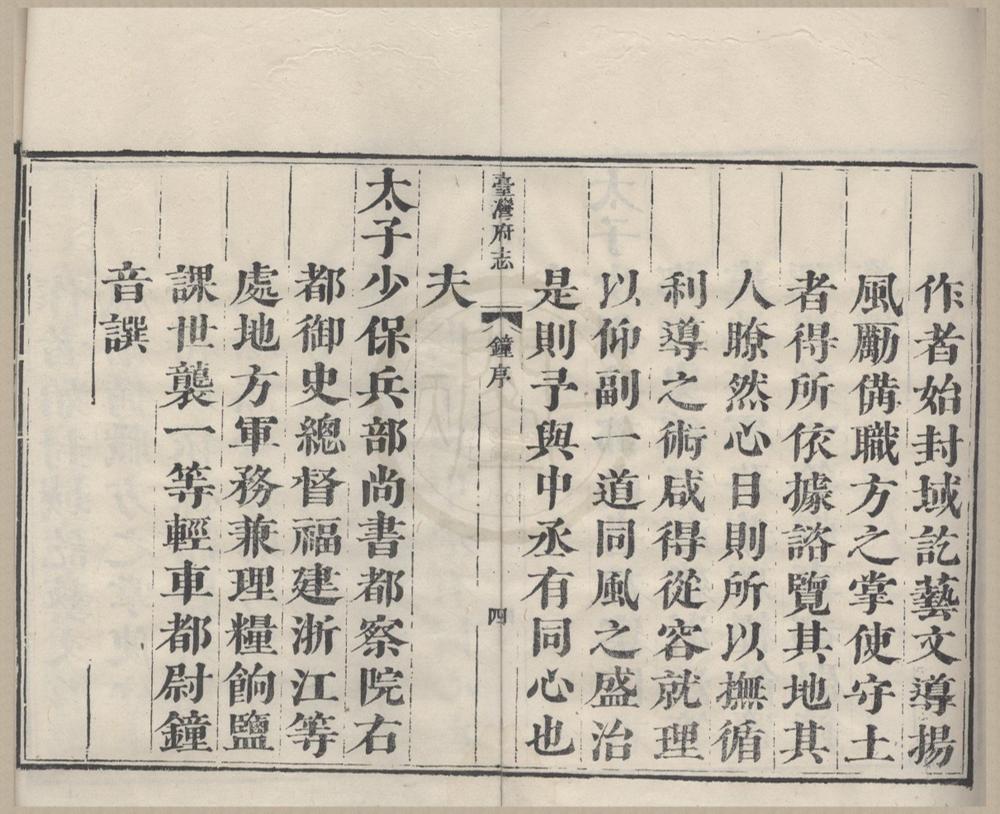 作者始封域訖藝文導揚
風勵備職方之掌使守土
者得所依據諮覽其地其
人瞭然心目則所以撫循
利導之術咸得從容就理
以仰副一道同風之盛治
是則予與中丞有同心也
臺灣府志 鐘序 四
夫
太子少保兵部尚書都察院右
都御史總督福建浙江等
處地方軍務兼理糧餉鹽
課世襲一等輕車都尉鐘
音譔